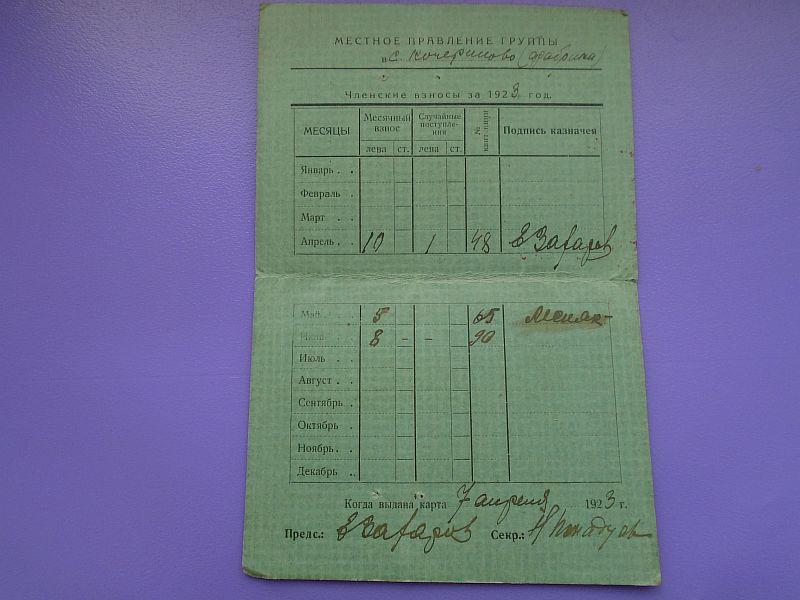 МЕСТНОЕ ПРАВЛЕНИЕ ГРУППЫ
в с. Кочериново (фабрика)
Членские взносы за 1923 год.
МЕСЯЦЫ Месячный взнос Случайные поступления № Подпись казначея
лева ст. лева ст.
Январь . .
Февраль .
Март . .
Апрель . . 10 1 48 Е Захаров
Май . . 5 65
8 - - 90
Июль . .
Август . .
Сентябрь .
Октябрь .
Ноябрь . .
Декабрь .
Когда выдана карта 7 апреля 1923 г.
Предс.: Е Захаров Секр.: